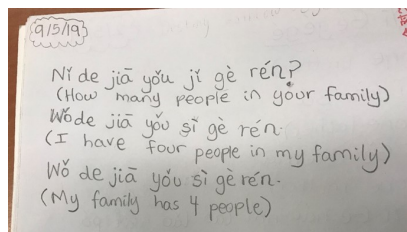 9/5/19
Nǐ de jiā yǒu jǐ gè rén?
(How many people in your family)
Wǒde jiā yǒu sì gè rén.
(I have four people in my family)
Wǒ de jiā yǒu sì gè rén.
(My family has 4 people)